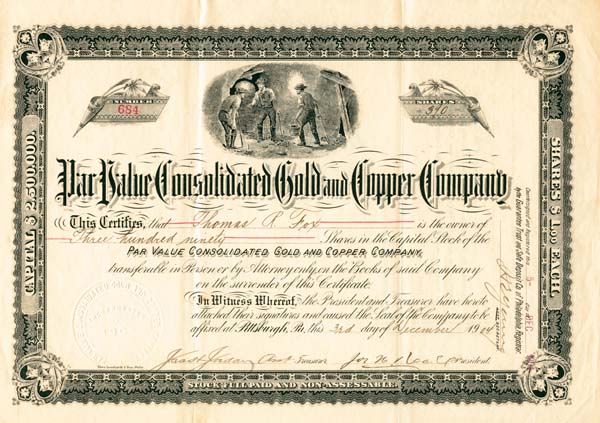 NUMBER
684
SHARES
390
Par Value Consolidated Gold and Copper Company
CAPITAL $2,500,000.
SHARES $1.00 EACH
This Certifies, that Thomas R. Fox is the owner of
Three hundred ninety Shares in the Capital Stock of the
PAR VALUE CONSOLIDATED GOLD AND COPPER COMPANY,
transferable in Person or by Attorney only, on the Books of said Company
on the surrender of this Certificate.
In Witness Whereof, the President and Treasurer have hereto
attached their signatures and caused the Seal of the Company to be
affixed at Pittsburgh, Pa. this 3rd day of December 1904
Treasurer
President
STOCK FULL PAID AND NON-ASSESSABLE.
Countersigned and Registered this 5- day DEC
by the Guarantee Trust and Safe Deposit Co. of Philadelphia, Registrar